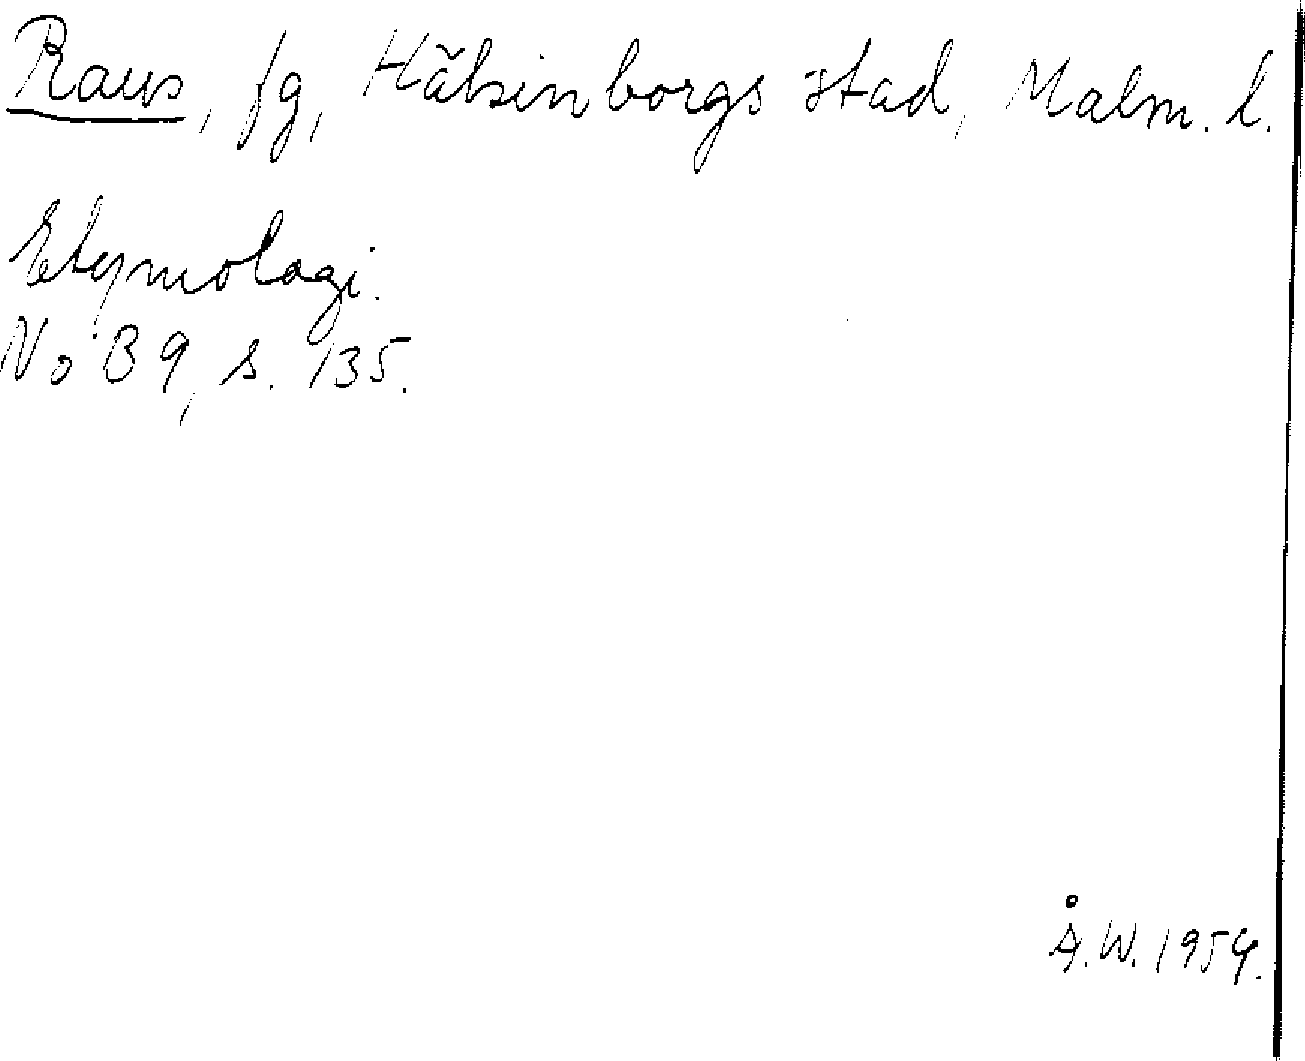 Raus, fg, Hälsinborgs stad, Malm. l.
Etymologi.
NoB 9, s. 135.
Å.W. 1954.